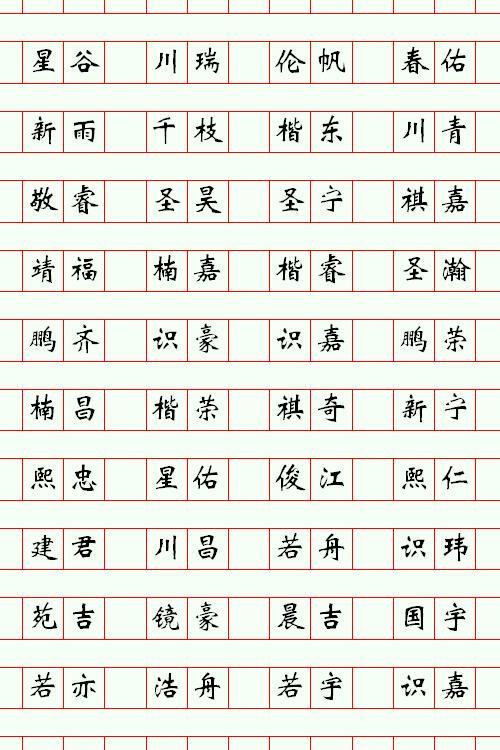 星谷 川瑞 伦帆 春佑
新雨 千枝 楷东 川青
敬睿 圣昊 圣宁 祺嘉
靖福 楠嘉 楷睿 圣瀚
鹏齐 识豪 识嘉 鹏荣
楠昌 楷荣 祺奇 新宁
熙忠 星佑 俊江 熙仁
建君 川昌 若舟 识玮
苑吉 镜豪 晨吉 国宇
若亦 浩舟 若宇 识嘉